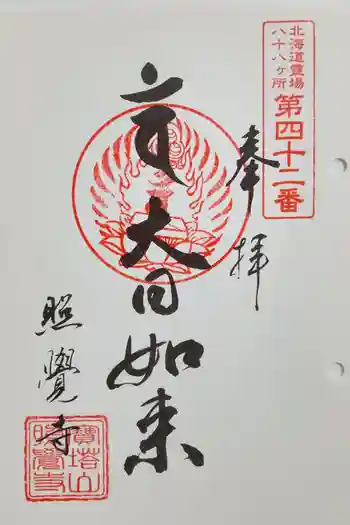 北海道霊場
八十八ヶ所
第四十二番
奉拝
大日如来
照覺寺
寶塔山
照覺寺